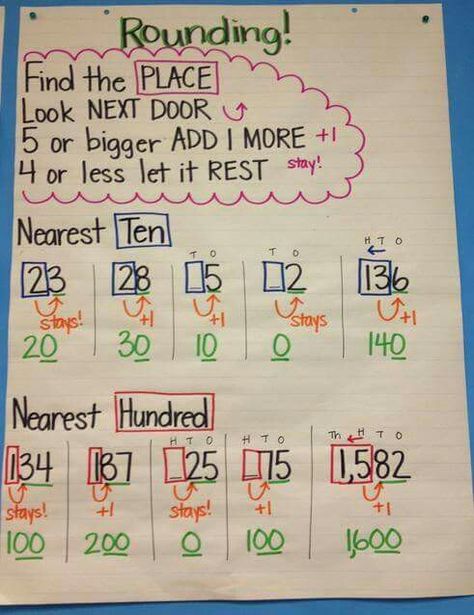 Rounding!
Find the PLACE
Look NEXT DOOR
5 or bigger ADD 1 MORE +1
4 or less let it REST stay!
Nearest Ten
T O T O H T O
23 28 _5 _2 136
stays! +1 +1 stays +1
20 30 10 0 140
Nearest Hundred
H T O H T O Th H T O
134 187 _25 _75 1,582
stays! +1 stays! +1 +1
100 200 0 100 1,600